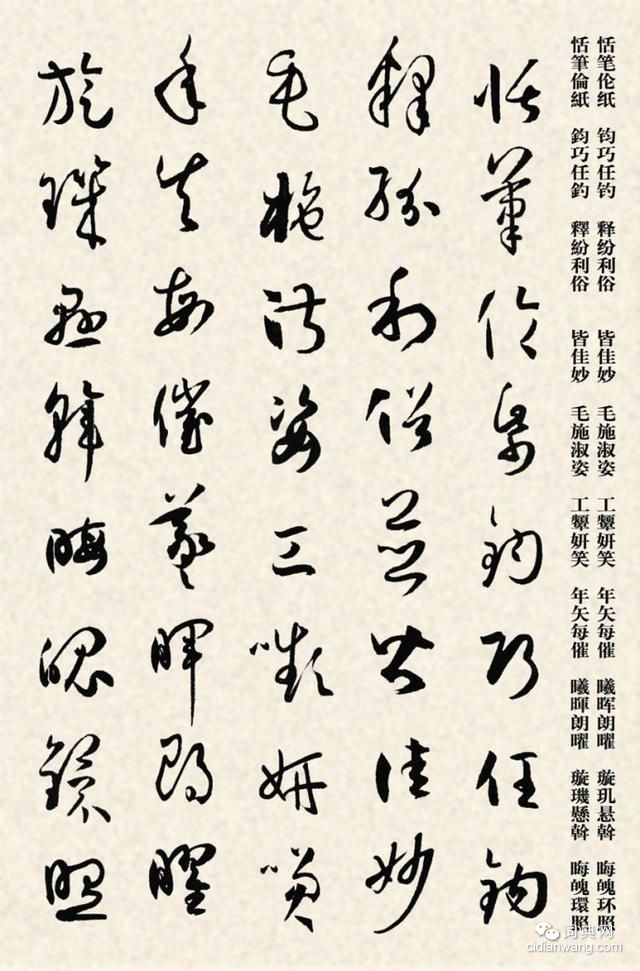 恬笔伦纸 钧巧任钓 释纷利俗 皆佳妙 毛施淑姿 工颦妍笑 年矢每催 曦晖朗曜 璇玑悬斡 晦魄环照
恬筆倫紙 鈞巧任釣 釋紛利俗 皆佳妙 毛施淑姿 工顰妍笑 年矢每催 曦暉朗曜 璇璣懸斡 晦魄環照
恬筆倫紙鈞巧任釣
釋紛利俗並皆佳妙
毛施淑姿工嚬妍笑
年矢每催羲暉朗曜
旋璣懸斡晦魄環照
词典网
cidianwang.com